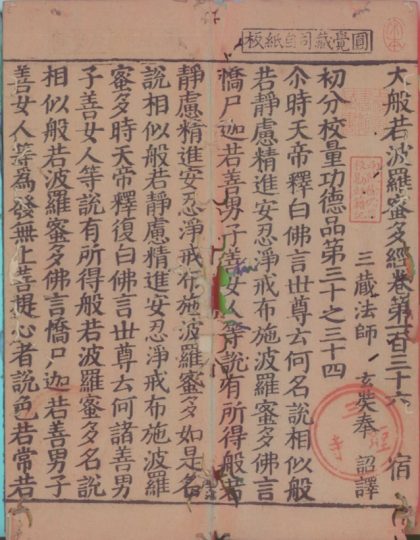 圓覺藏司自紙板
大般若波羅蜜多經卷第一百三十六 宿
三藏法師 玄奘奉 詔譯
初分校量功德品第三十之三十四
尒時天帝釋白佛言世尊云何名說相似般
若靜慮精進安忍淨戒布施波羅蜜多佛言
憍尸迦若善男子善女人等說有所得般若
靜慮精進安忍淨戒布施波羅蜜多如是名
說相似般若靜慮精進安忍淨戒布施波羅
蜜多時天帝釋復白佛言世尊云何諸善男
子善女人等說有所得般若波羅蜜多名說
相似般若波羅蜜多佛言憍尸迦若善男子
善女人等為發無上菩提心者說色若常若